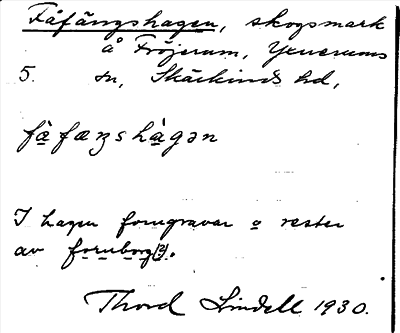 Fåfängshagen, skogsmark
å Fröjerum, Yxnerums
5. sn, Skärkinds hd,
få̀fæŋshà̱gən
I hagen forngravar o rester
av fornborg(?).
Thord Lindell 1930.